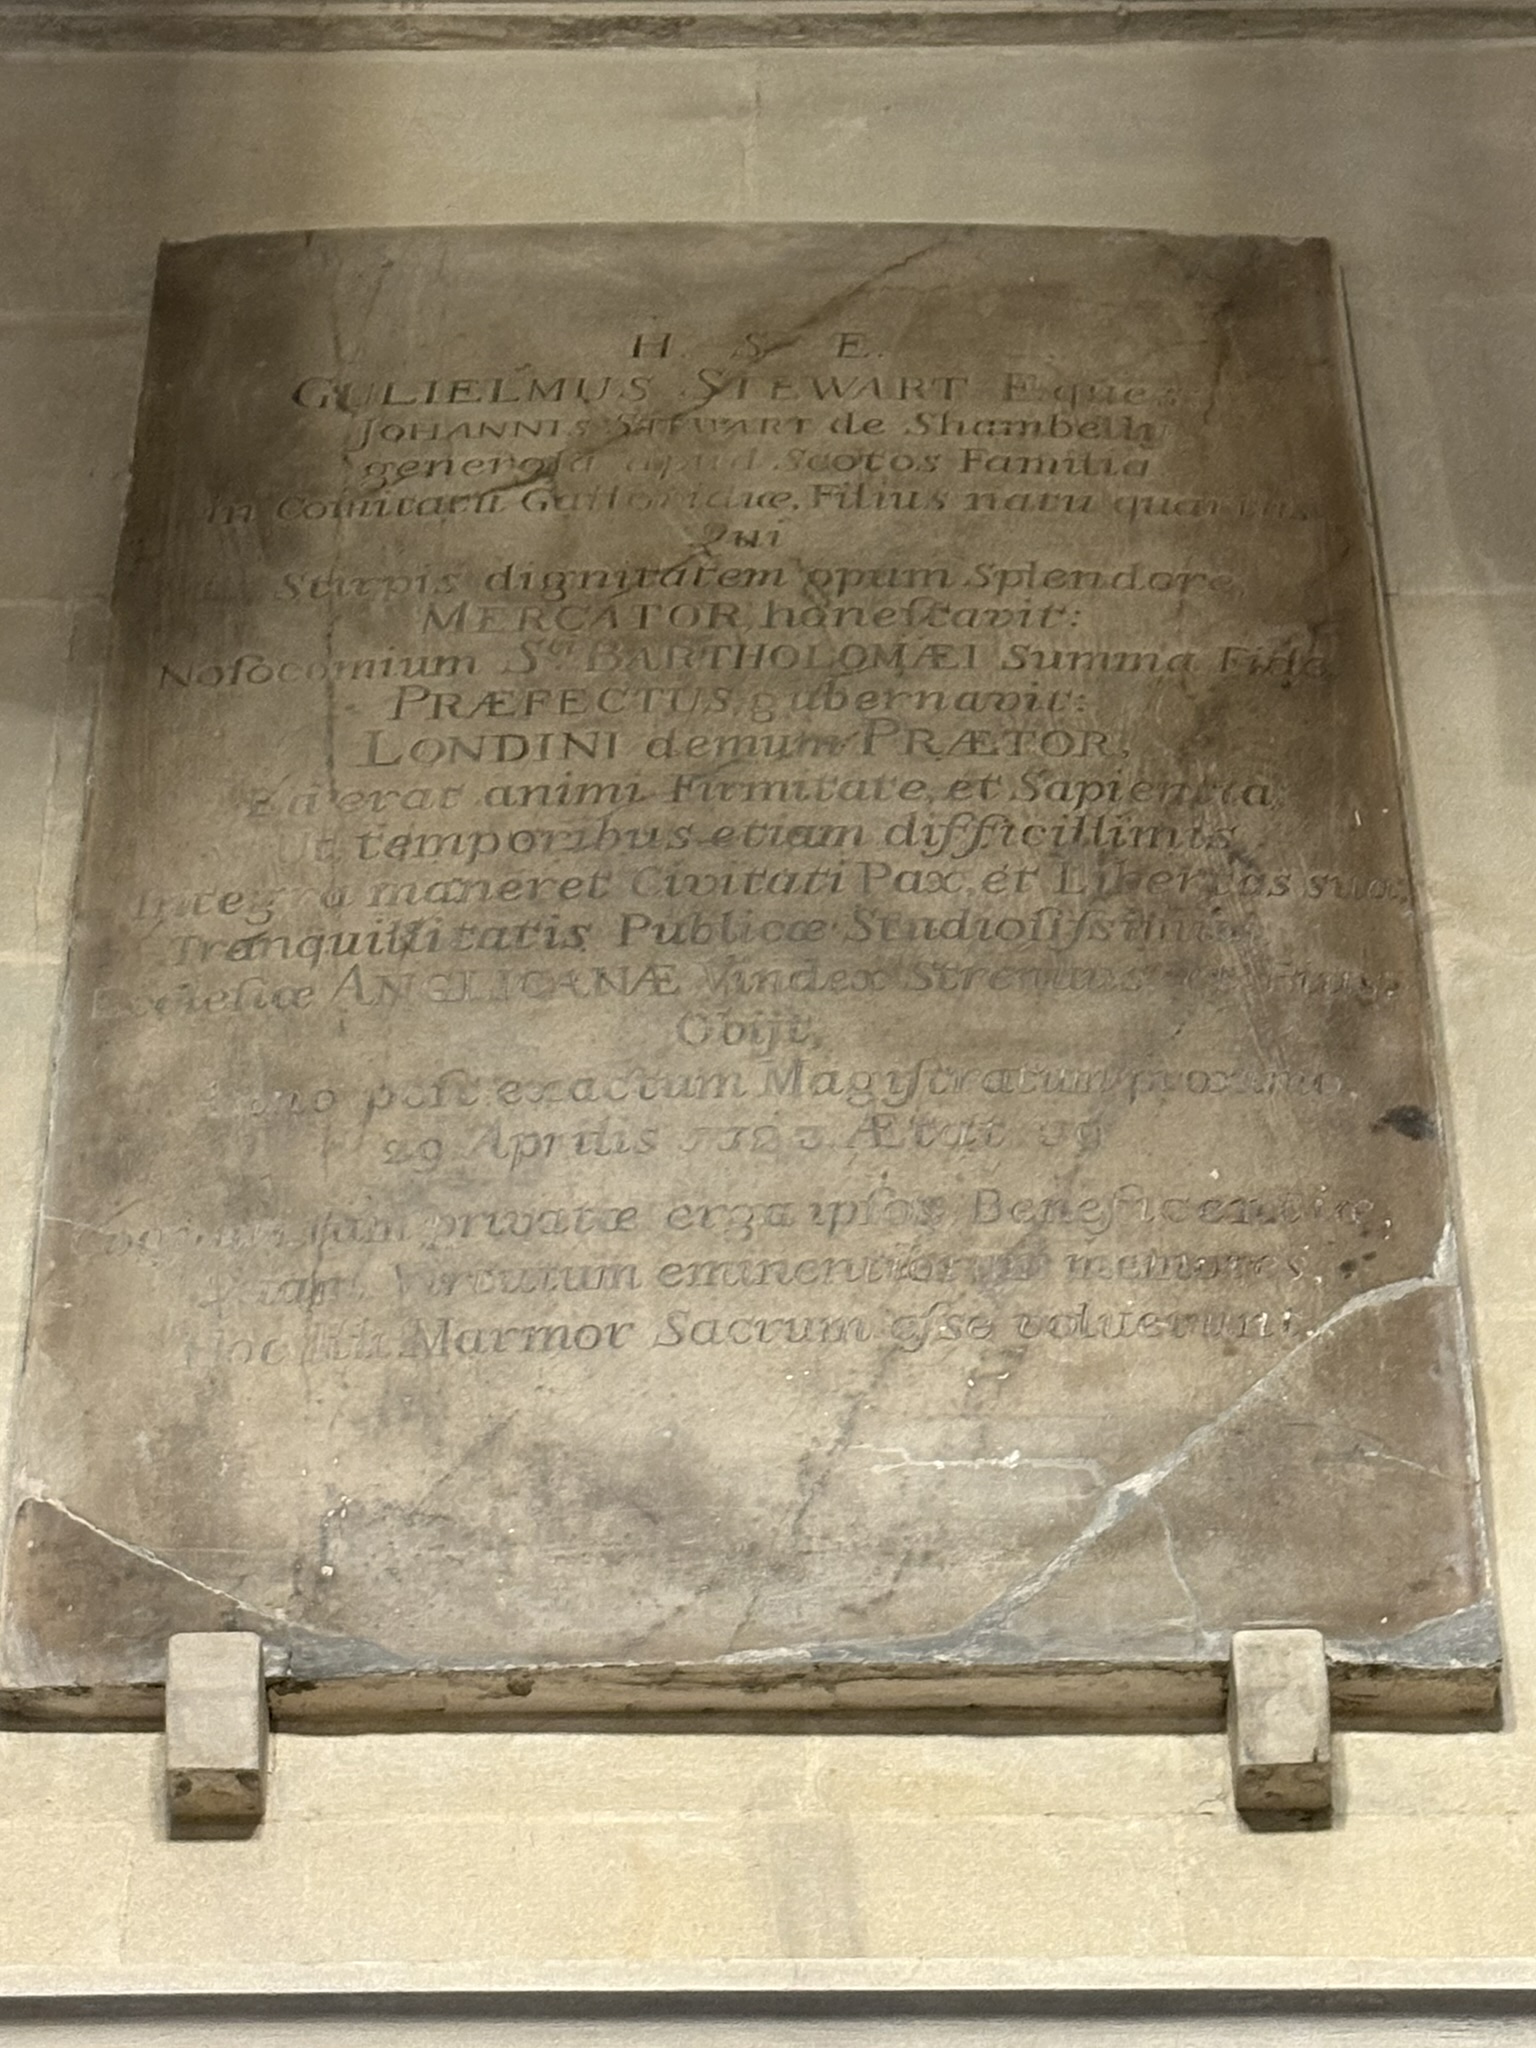 H. S. E.
GULIELMUS STEWART Eques
JOHANNIS STEWART de Shambelly
generoſa apud Scotos Familia
In Comitatu Gallovidiæ, Filius natu quartus.
Qui
Stirpis dignitatem opum Splendore,
MERCATOR, honeſtavit:
Noſocomium Sti BARTHOLOMÆI Summa Fide
PRÆFECTUS, gubernavit:
LONDINI demum PRÆTOR,
Ea erat animi Firmitate, et Sapientia,
Ut temporibus etiam difficillimis
Integra maneret Civitati Pax, et Libertas sua,
Tranquillitatis Publicæ Studioſiſsimus
Eccleſiæ ANGLICANÆ Vindex Strenuus et Pius.
Obijt,
Anno poſt exactum Magiſtratum proximo,
29 Aprilis 1723 Ætat.
privatæ erga ipſos Beneficentiæ,
Virtutum eminentiorum memores,
Hoc Illi Marmor Sacrum eſse voluerunt.